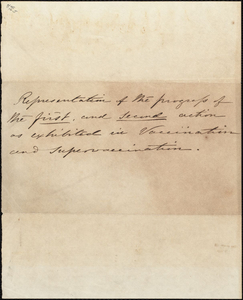 Representation of the progress of
the first, and second action
as exhibited in Vaccination
and supervaccination.